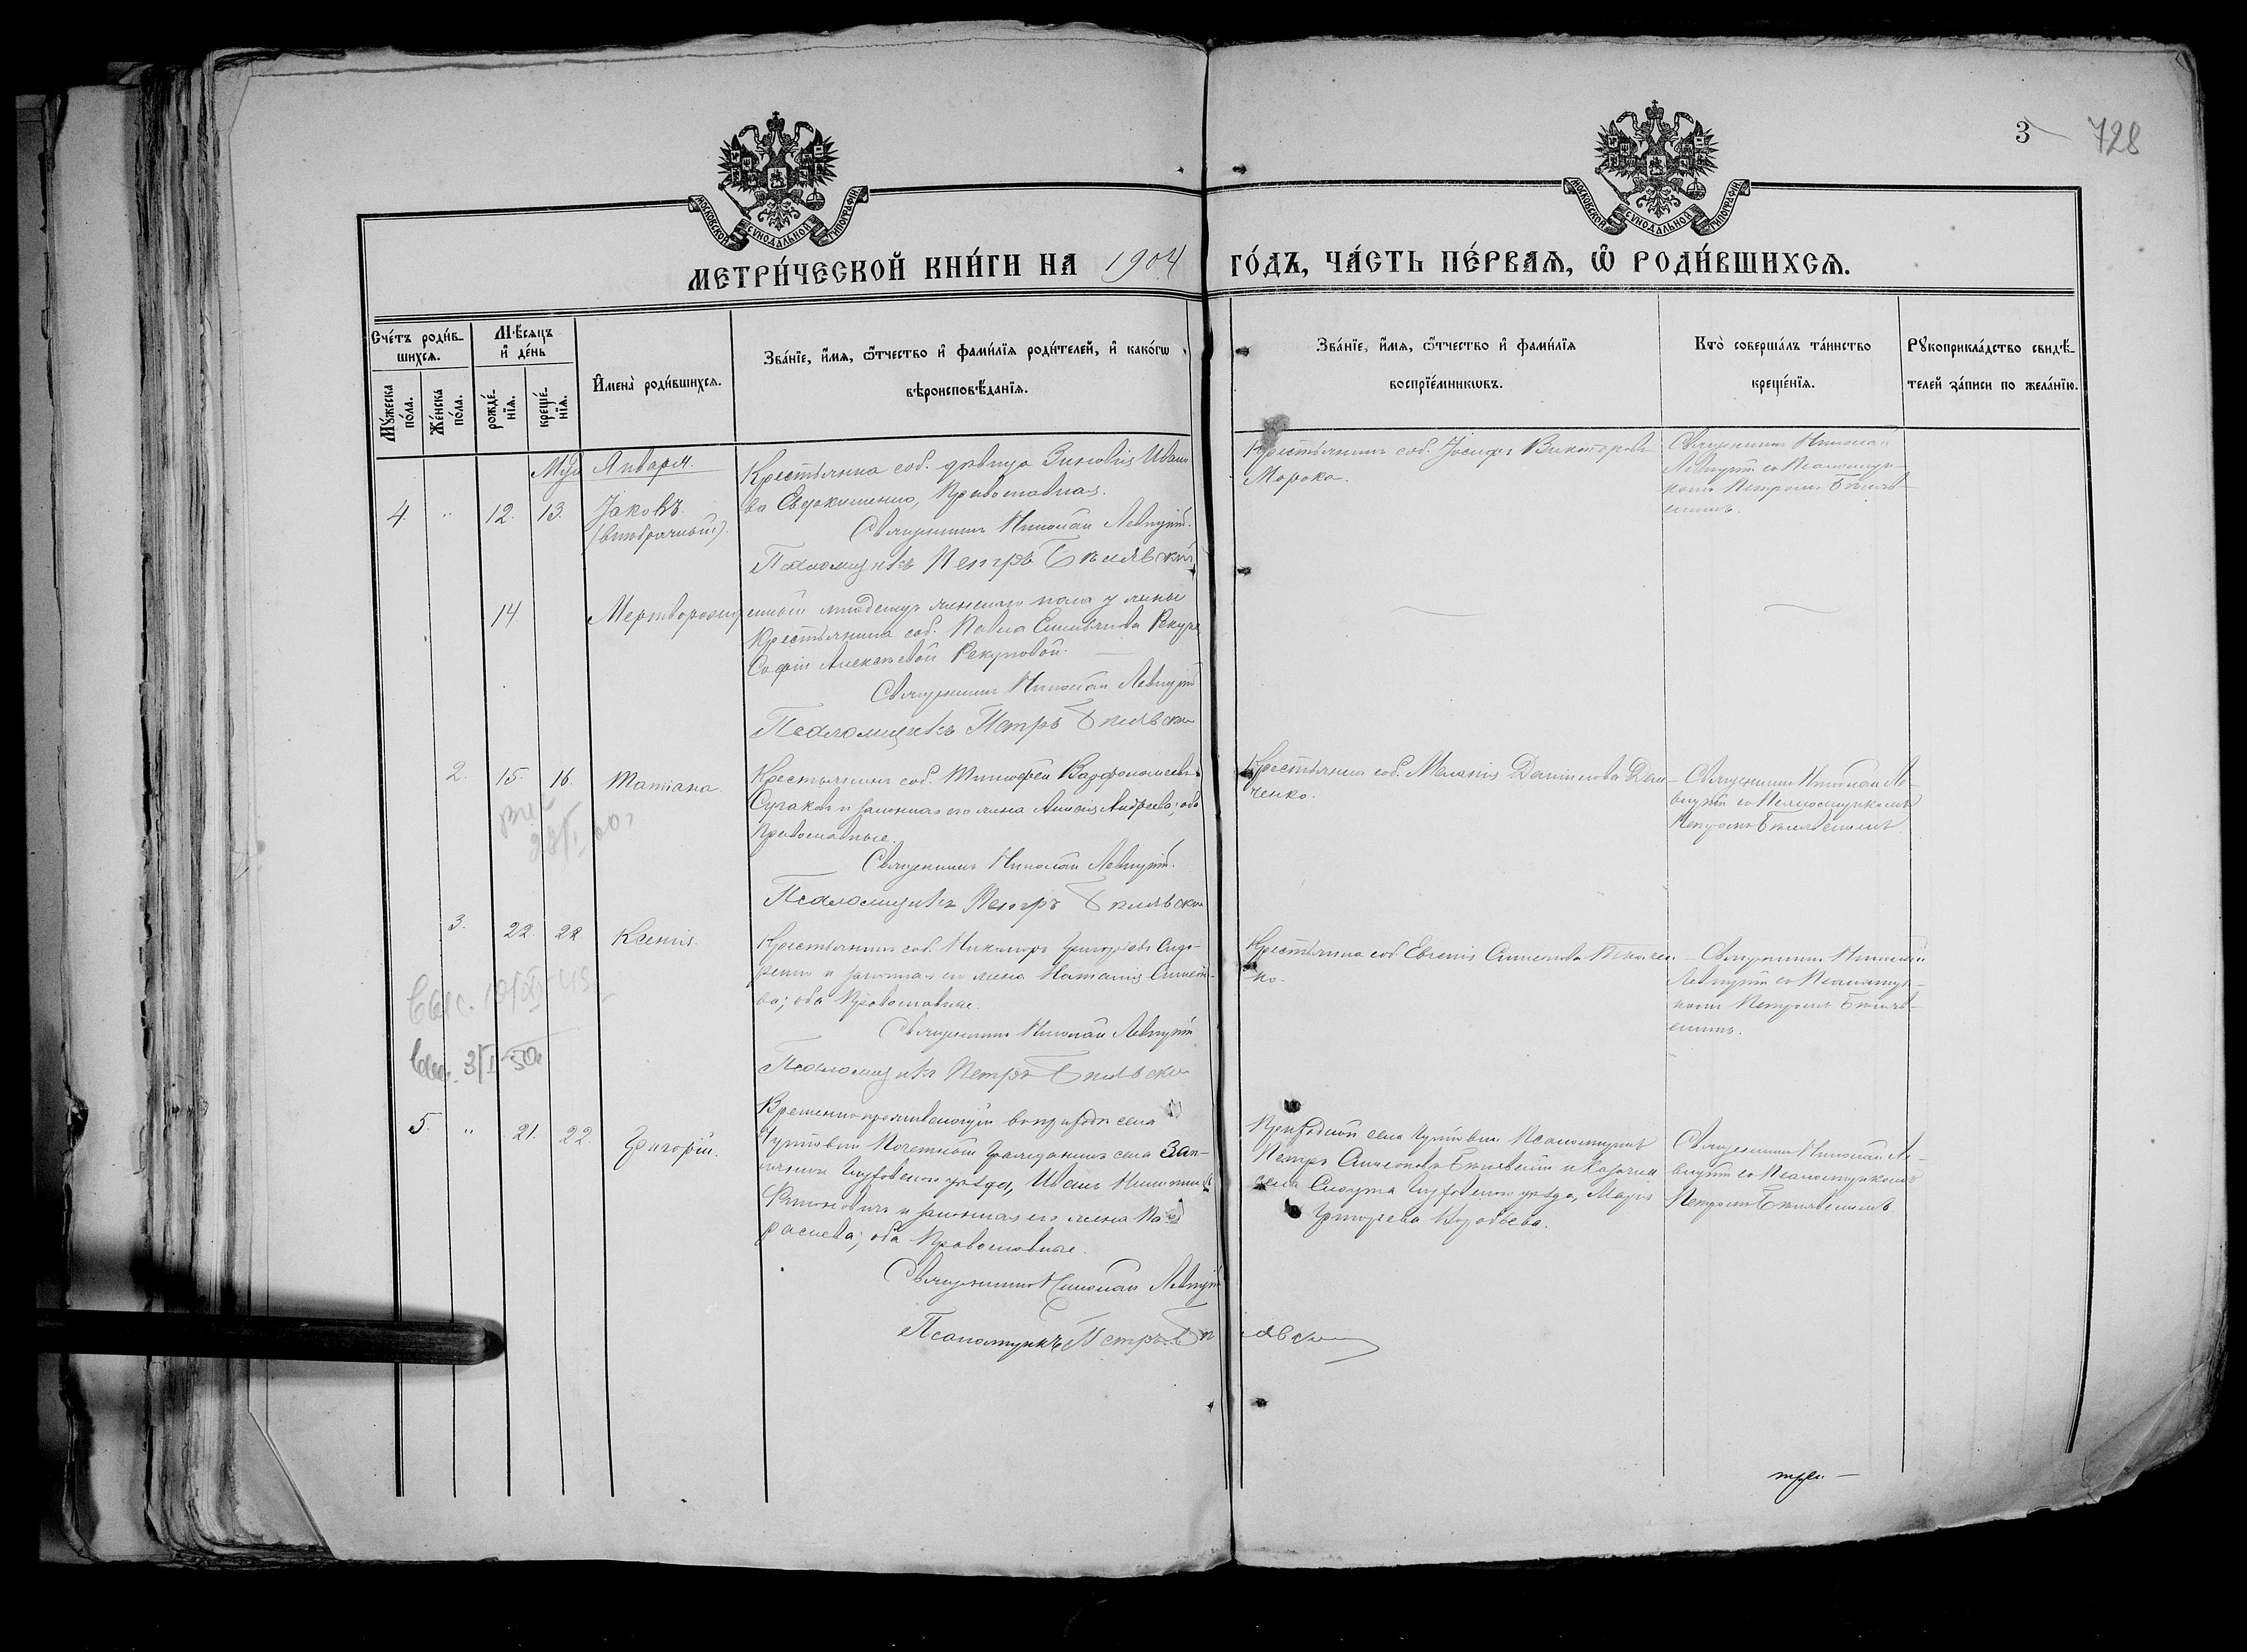 3
728
МОСКОВСКОЙ СѴНОДАЛЬНОЙ ТИПОГРАФІИ
МОСКОВСКОЙ СѴНОДАЛЬНОЙ ТИПОГРАФІИ
МЕТРИ́ЧЕСКОЙ КНИ́ГИ НА 1904 ГО́ДЪ, ЧА́СТЬ ПЕ́РВАѦ, Ѽ РОДИ́ВШИХСѦ.
Сче́тъ роди́в-
шихсѧ.
Му́жеска по́ла.
Же́нска по́ла.
Мѣ́сѧцъ и де́нь
рожде́нїѧ.
креще́нїѧ.
Имена̀ роди́вшихсѧ.
Зва́нїе, и́мѧ, ѻ́тчество и фами́лїѧ роди́телей, и како́гѡ
вѣроисповѣ́данїѧ.
Зва́нїе, и́мѧ, ѻ́тчество и фами́лїѧ
воспрїе́мникѡвъ.
Кто̀ соверша́лъ та́инство
креще́нїѧ.
Рукоприкла́дство свидѣ́-
телей за́писи по жела́нїю.
Января.
4. " 12. 13. Іаковъ
(внѣбрачный).
Крестьянка соб. дѣвица Зиновія Ивано-
ва Евдокименко, Православная.
Священникъ Николай Левицкій.
Псаломщикъ Петръ Бѣлявскій
Крестьянинъ соб. Іосифъ Викторовъ
Морока.
Священникъ Николай
Левицкій со Псаломщи-
комъ Петромъ Бѣляв-
скимъ.
14. Мертворожденный младенецъ женскаго пола у жены
Крестьянина соб. Павла Емельянова Рекуна
Софіи Алексѣевой Рекуновой.
Священникъ Николай Левицкій
Псаломщикъ Петръ Бѣлявскій
2. 15. 16. Татіана
Крестьянинъ соб. Тимофей Варфоломеевъ
и законная его жена Андреева, оба
Православные.
Священникъ Николай Левицкій.
Псаломщикъ Петръ Бѣлявскій
Крестьянка соб. Меланія Даниилова Дем-
ченко.
Священникъ Николай Ле-
вицкій со Псаломщикомъ
Петромъ Бѣлявскимъ.
3. 22. 22 Ксенія.
Крестьянинъ соб. Никаноръ Григорьевъ Сидо-
ренко и законная его жена Наталія Симео-
ва; оба Православные.
Священникъ Николай Левицкій
Псаломщикъ Петръ Бѣлявскій
Крестьянка соб. Евгенія Симеонова Ткачен-
ко.
Священникъ Николай
Левицкій со Псаломщи-
комъ Петромъ Бѣляв-
скимъ.
3/I-50
5. " 21. 22. Григорій.
Временно проживающій въ приходѣ села
Почетный Гражданинъ села
уѣзда, Иванъ
и законная его жена
оба Православные.
Священникъ Николай Левицкій
Псаломщикъ Петръ Бѣлявскій
села Псаломщикъ
Петръ Симеоновъ Бѣлявскій и Казачка
села уѣзда, Марія
Григорьева Воробьева.
Священникъ Николай Ле-
вицкій со Псаломщикомъ
Петромъ Бѣлявскимъ.